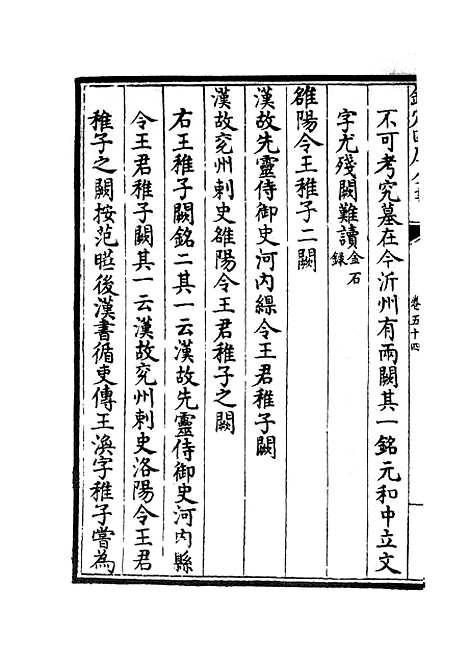 卷五十四
不可考究墓在今沂州有兩闕其一銘元和中立文
字尤殘闕難讀金石錄
雒陽令王稚子二闕
漢故先靈侍御史河内緱令王君稚子闕
漢故兖州刺史雒陽令王君稚子之闕
右王稚子闕銘二其一云漢故先靈侍御史河内縣
令王君稚子闕其一云漢故兖州刺史洛陽令王君
稚子之闕按范曄後漢書循吏傳王渙字稚子嘗為